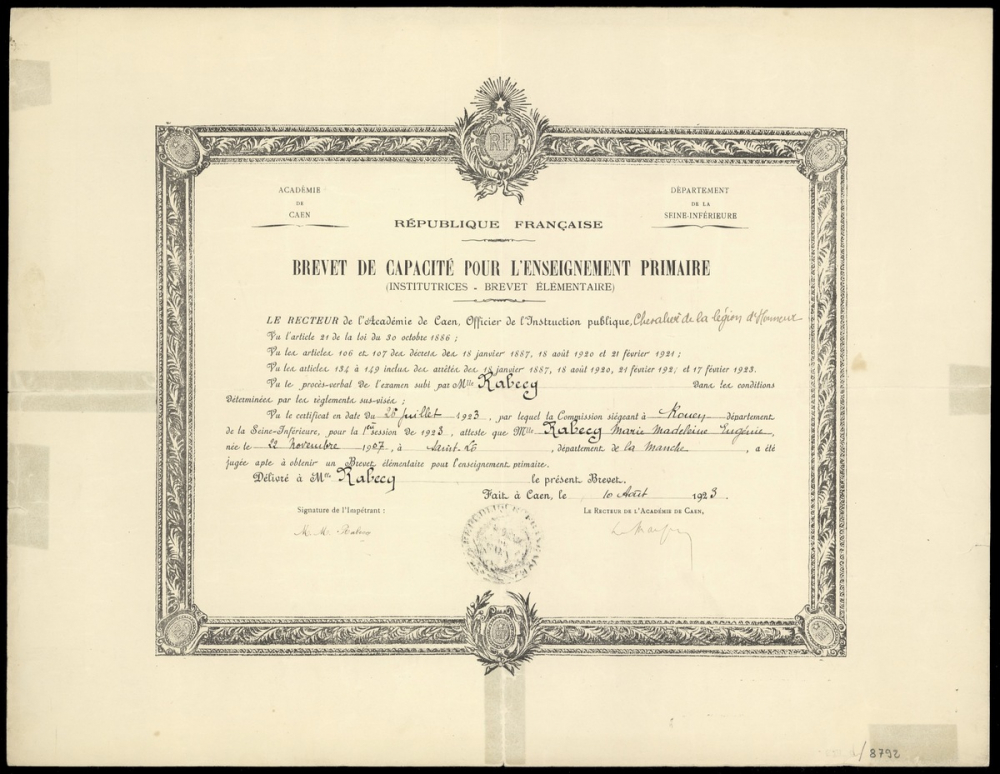 RF
ACADÉMIE
DE
CAEN
DÉPARTEMENT
DE LA
SEINE-INFÉRIEURE
RÉPUBLIQUE FRANÇAISE
BREVET DE CAPACITÉ POUR L'ENSEIGNEMENT PRIMAIRE
(INSTITUTRICES - BREVET ÉLÉMENTAIRE)
LE RECTEUR de l'Académie de Caen, Officier de l'Instruction publique, Chevalier de la légion d'Honneur
Vu l'article 21 de la loi du 30 octobre 1886 ;
Vu les articles 106 et 107 des décrets des 18 janvier 1887, 18 août 1920 et 21 février 1921 ;
Vu les articles 134 à 149 inclus des arrêtés des 18 janvier 1887, 18 août 1920, 21 février 192, et 17 février 1923.
Vu le procès-verbal de l'examen subi par Mlle Rabecy Dans les conditions
Déterminées par les règlements sus-visés ;
Vu le certificat en date du juillet 1923, par lequel la Commission siégeant à Rouen département
de la Seine-Inférieure, pour la 1re session de 1923, atteste que Mlle Rabecy Marie Madeleine Eugénie,
née le 22 novembre 1907, à Saint-Lô, département de la Manche, a été
jugée apte à obtenir un Brevet élémentaire pour l'enseignement primaire.
Délivré à Mlle Rabecy le présent Brevet.
Fait à Caen, le 10 Août 1923.
Signature de l'Impétrant :
LE RECTEUR DE L'ACADÉMIE DE CAEN,
M. M. Rabecy
8792